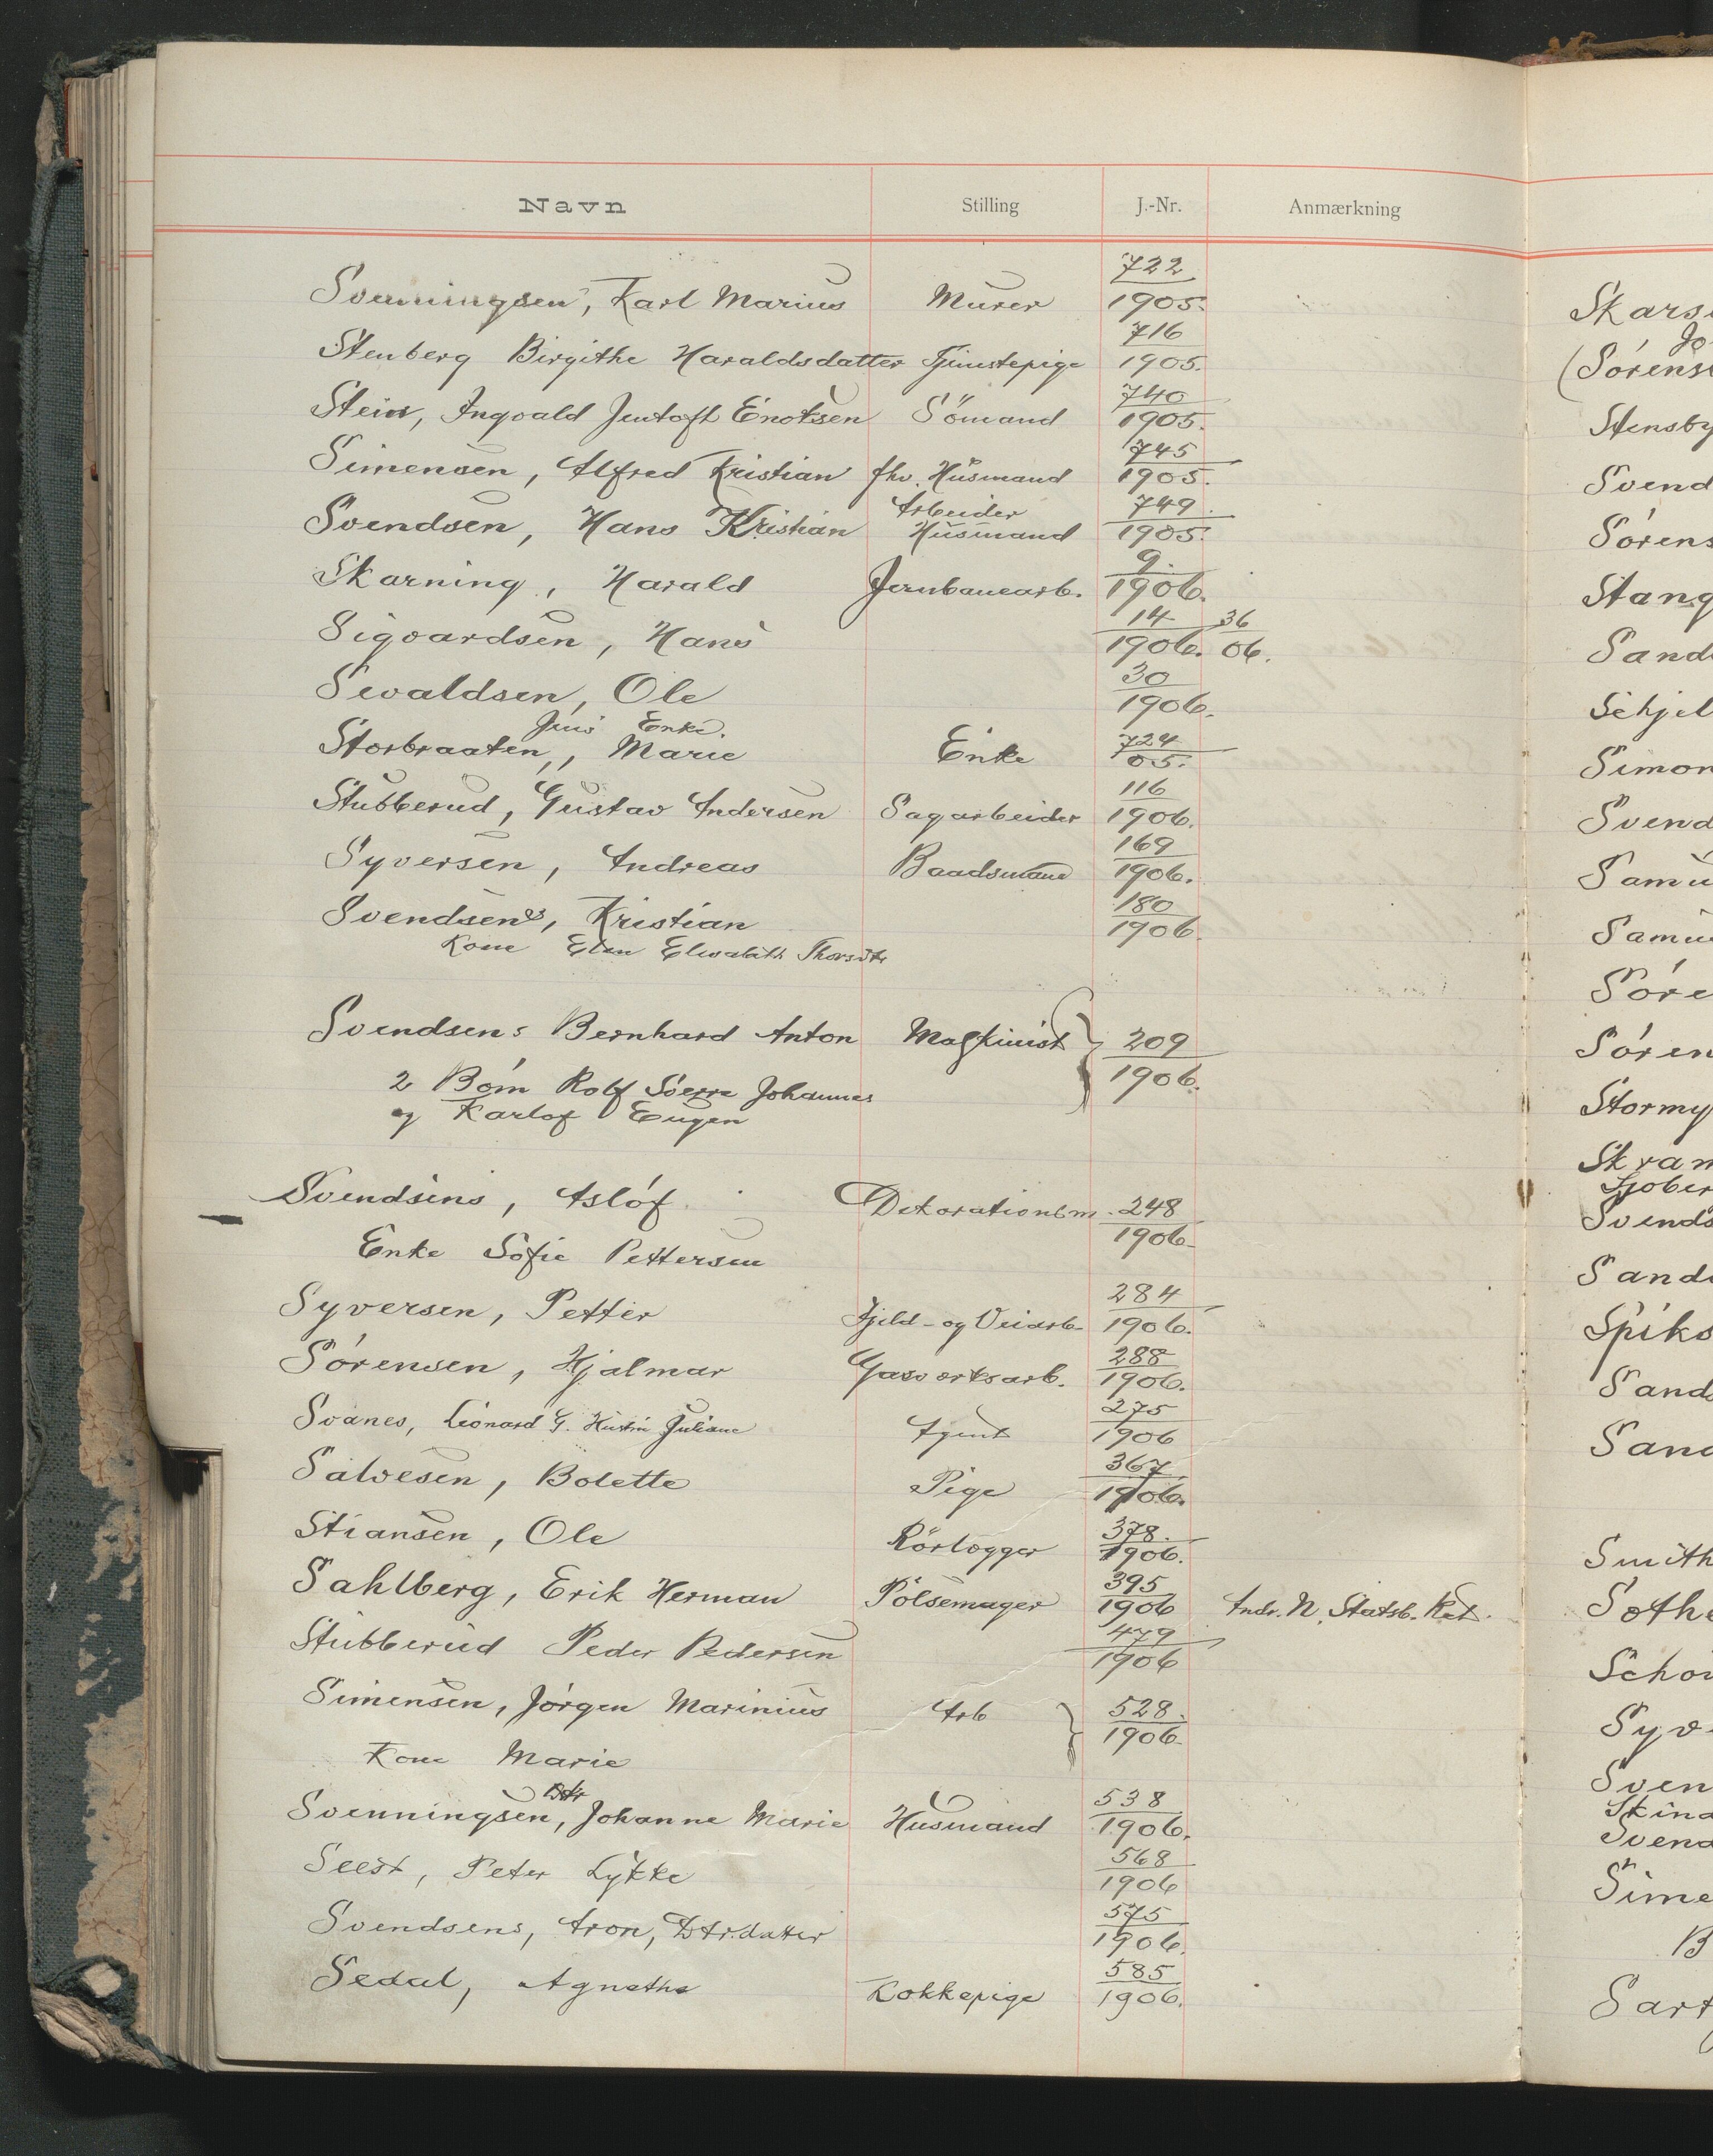 Navn Stilling J.-Nr. Anmærkning
Svenningsen, Karl Marius Murer 722/1905.
Stenberg Birgithe Haraldsdatter Tjenestepige 716/1905.
Stein, Ingvald Jentoft Enoksen Sömand 740/1905.
Simensen, Alfred Kristian fhv. Husmand 745/1905.
Svendsen, Hans Kristian Arbeider Husmand 749/1905.
Skarning, Harald Jernbanearb. 9./1906.
Sigvardsen, Hans 14/1906. 36/06.
Sevaldsen, Ole 30/1906.
Jens Enke.
Storbraaten,, Marie Enke 724/05.
Stubberud, Gustav Andersen Sagarbeider 116/1906.
Syversen, Andreas Baadsmand 169/1906.
Svendsens, Kristian 180/1906.
Kone Elen Elisabeth Thorsdtr
Svendsens Bernhard Anton Maskinist 209/1906.
2 Börn Rolf Sverre Johannes
og Karlof Eugen
Svendsens, Aslóf Dekorationsm. 248/1906.
Enke Sofie Pettersen
Syversen, Petter Fjeld- og Veiarb. 284/1906.
Sörensen, Hjalmar Gasverksarb. 288/1906.
Svanes, Leonard G. Hustru Juliane Agent 275/1906
Salvesen, Bolette Pige 367/1906.
Stiansen, Ole Rörlægger 378./1906.
Sahlberg, Erik Herman Pölsemager 395/1906 Andr. N. Statsb. Ret.
Stubberud Peder Pedersen 479/1906
Simensen, Jörgen Marinius Arb 528./1906.
Kone Marie
Dtr
Svenningsen, Johanne Marie Husmand 538/1906.
Seest, Peter Lykke 568/1906
Svendsens, Aron, Dtr.datter 575/1906.
Sedal, Agnethe Kokkepige 585/1906.
Jo
(Sörens
Stensby
Svend
Sörens
Stang
Sand
Schjel
Simon
Svend
Samu
Samu
Söre
Sören
Stormy
Skram
Sjöber
Svends
Sand
Spiks
Sand
San
Smith
Söthe
Schou
Syv
Sven
Skina
Svend
Sime
B
Sart